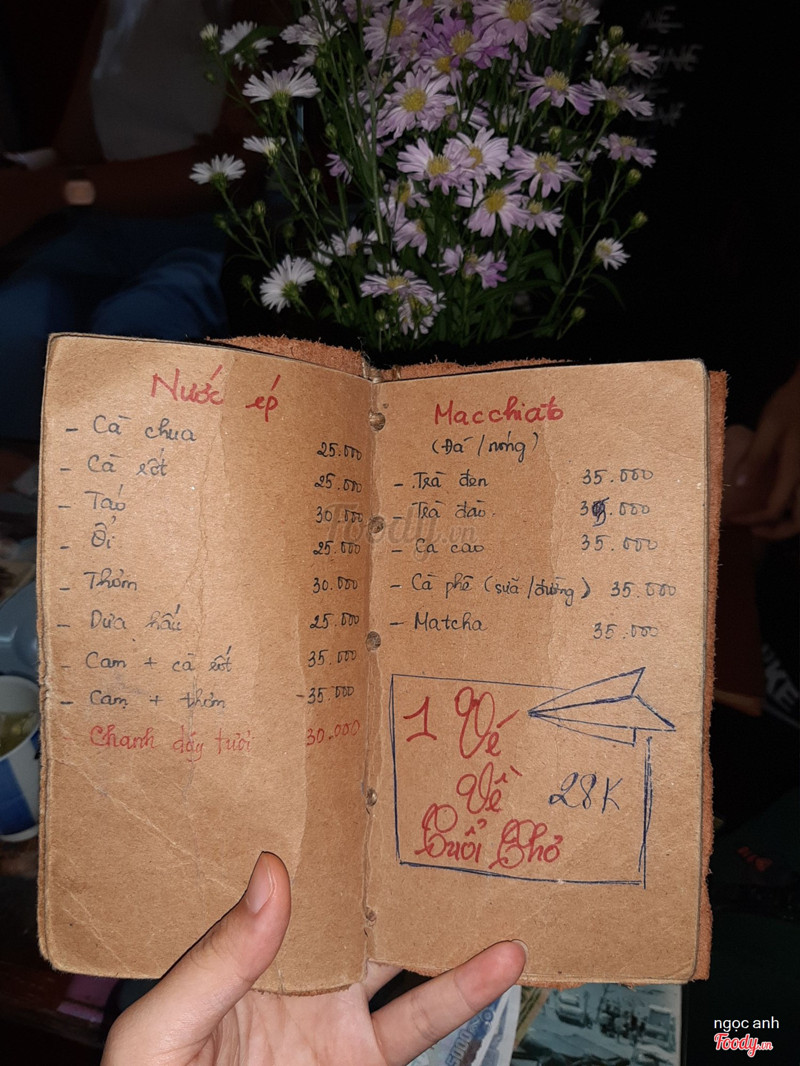 Nước ép
- Cà chua 25.000
- Cà rốt 25.000
- Táo 30.000
- Ổi 25.000
- Thơm 30.000
- Dưa hấu 25.000
- Cam + cà rốt 35.000
- Cam + thơm - 35.000
Chanh dây tươi 30.000
Macchiato
(Đá / nóng)
- Trà đen 35.000
- Trà đào 35.000
- Ca cao 35.000
- Cà phê (sữa / đường) 35.000
- Matcha 35.000
1 Vé
Về
Tuổi Thơ
28K
Foody.vn
5000
ngọc anh
Foody.vn